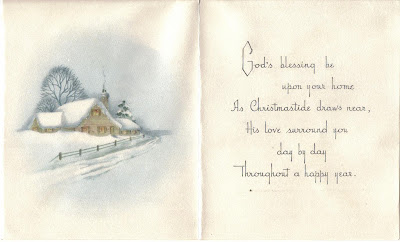 God's blessing be
upon your home
As Christmastide draws near,
His love surround you
day by day
Throughout a happy year.